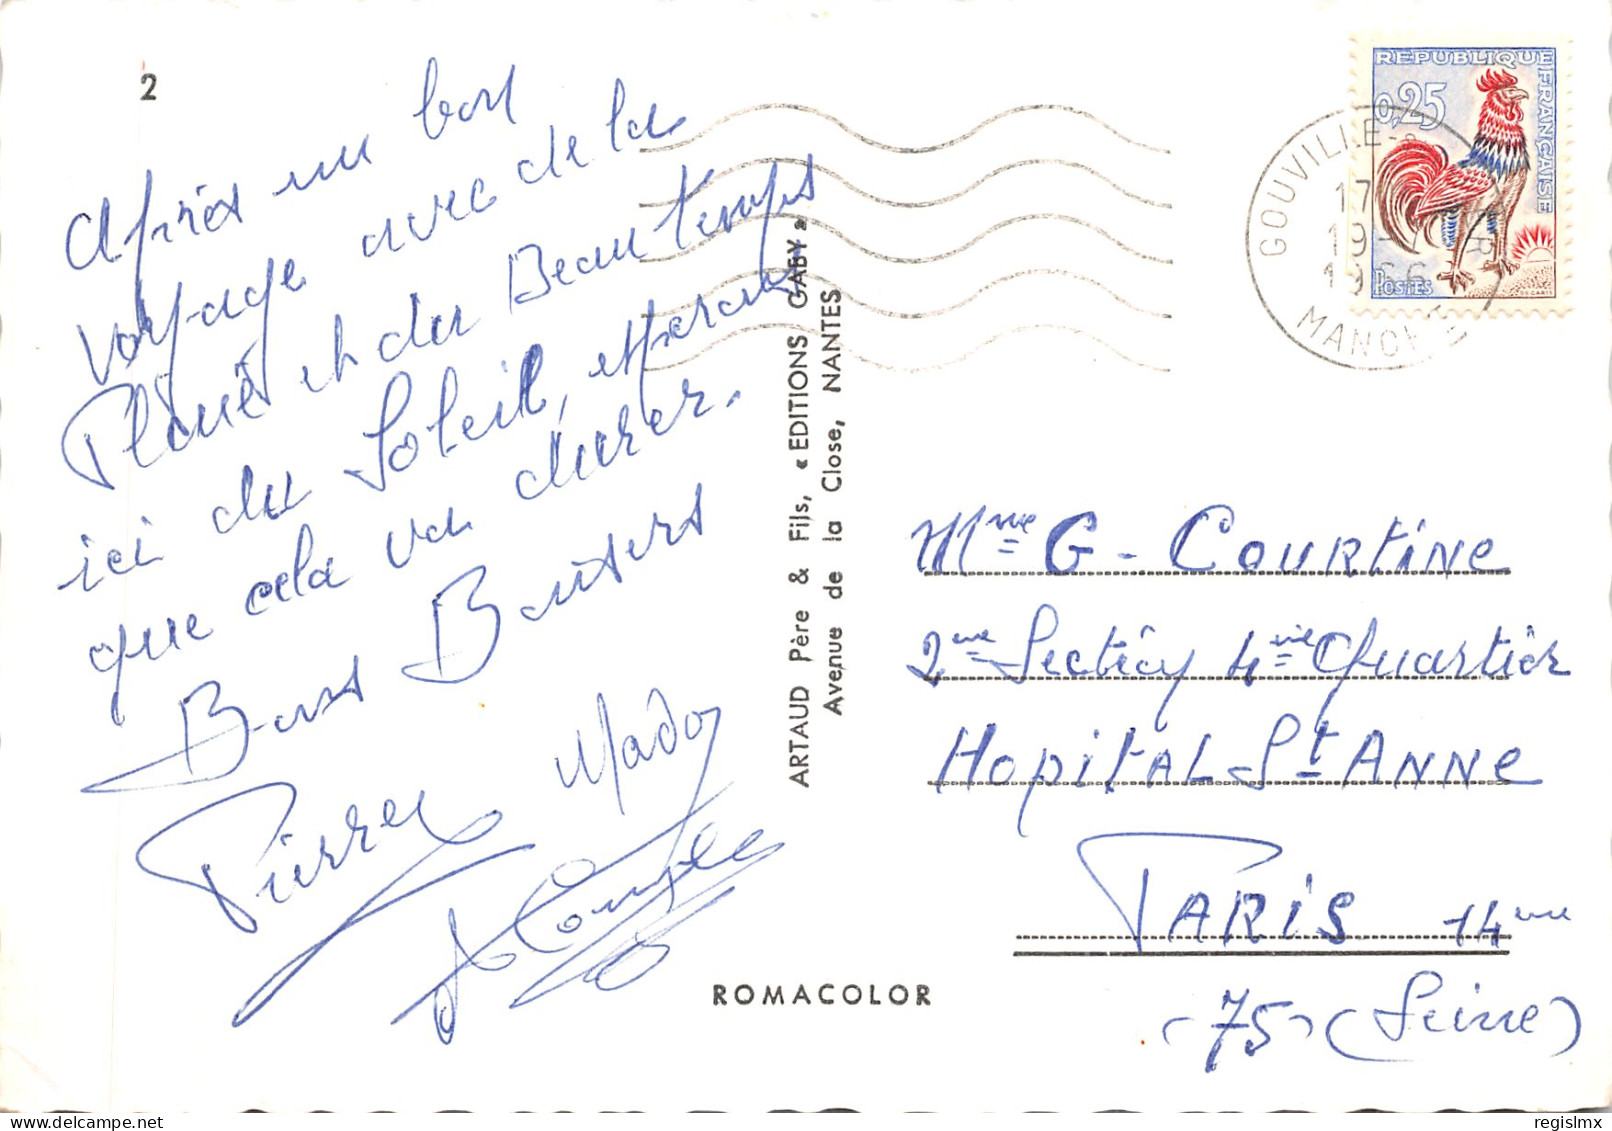 2
Après un bon
voyage avec de la
Pluie et du Beau temps
ici du Soleil, espérons
que cela va durer.
Bons Baisers
Pierre Mado
ARTAUD Père & Fils, « EDITIONS GABY »
Avenue de la Close, NANTES
ROMACOLOR
REPUBLIQUE FRANÇAISE
0,25
POSTES
GOUVILLE-S
17
19 -
1966
MANCHE
Mme G - COURTINE
2me Section 4me Quartier
HOPITAL St ANNE
PARIS 14me
(75) (Seine)
regislmx